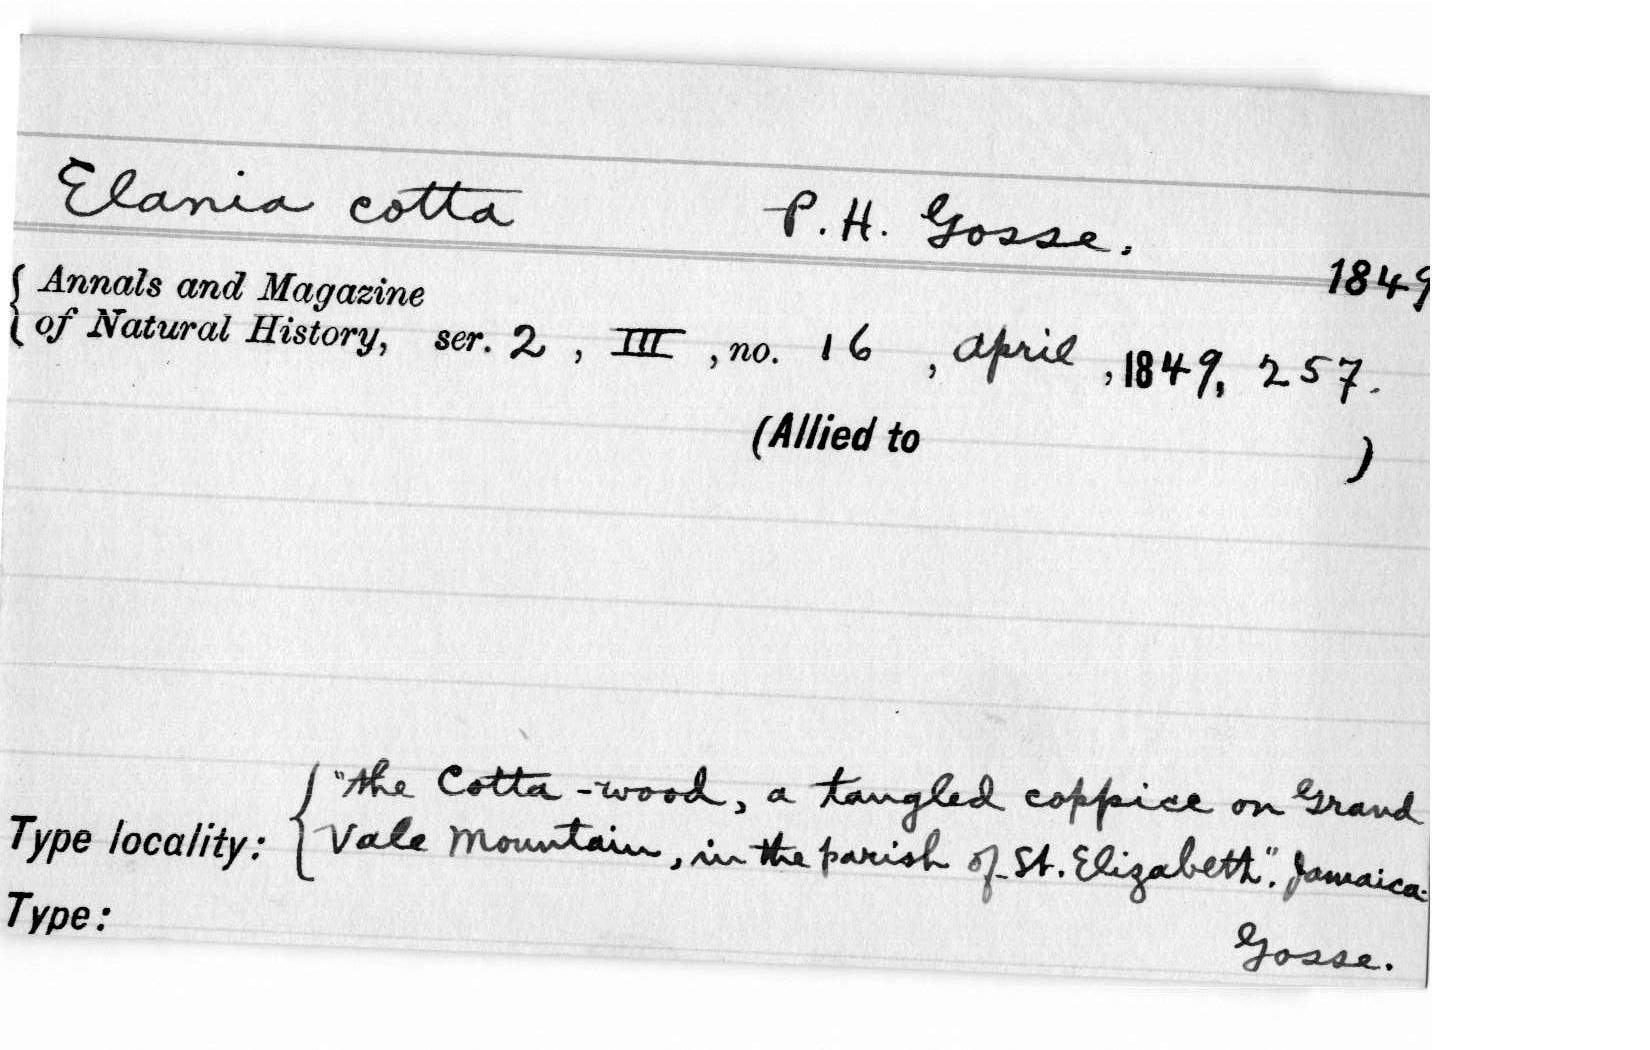 Elania cotta P. H. Gosse.
1849
{ Annals and Magazine
of Natural History, ser. 2, III, no. 16, April, 1849, 257.
(Allied to )
Type locality: { "the Cotta-wood, a tangled coppice on Grand
Vale Mountain, in the parish of St. Elizabeth". Jamaica.
Type:
Gosse.